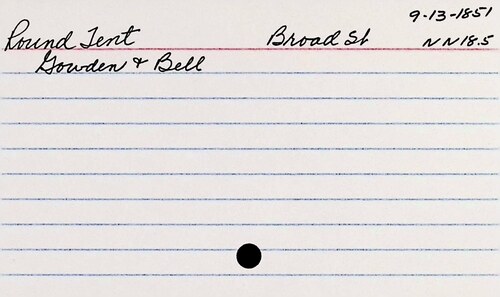 9-13-1851
Round Tent Broad St NN18.5
Gowden & Bell